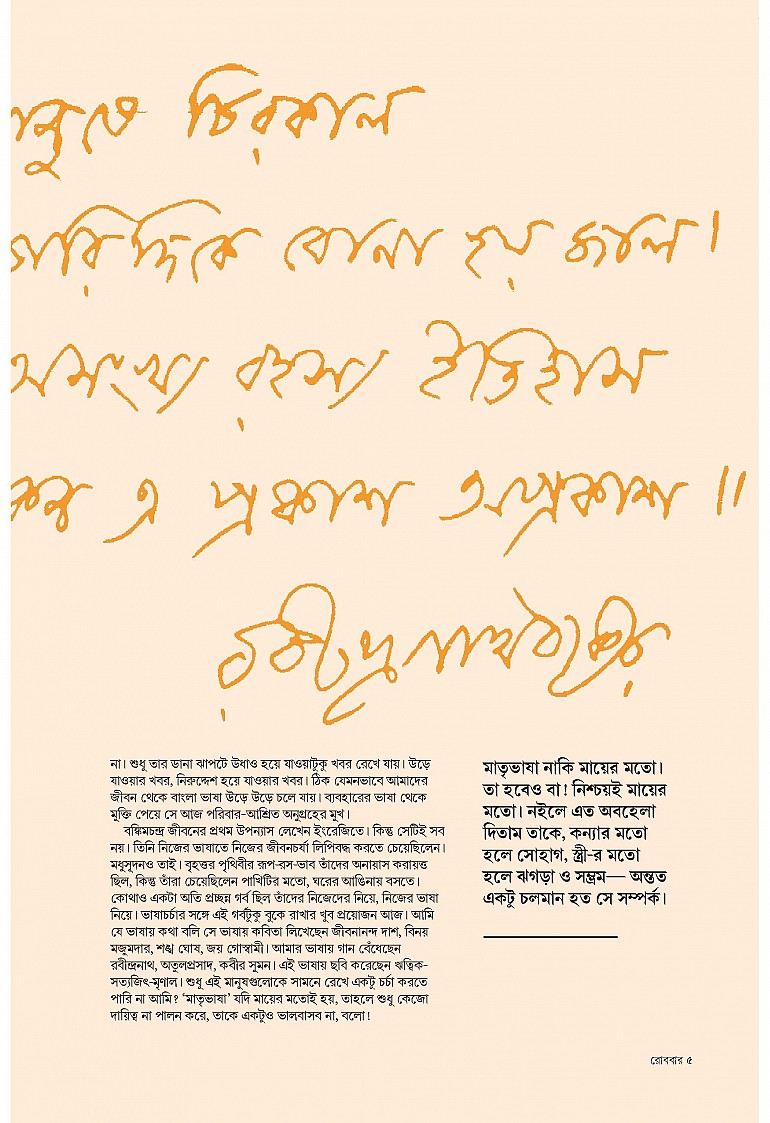 চিরকাল
চারিদিকে বোনা হয় জাল।
অসংখ্য রহস্য ইতিহাস
এ প্রকাশ অপ্রকাশ॥
না। শুধু তার ডানা ঝাপটে উধাও হয়ে যাওয়াটুকু খবর রেখে যায়। উড়ে
যাওয়ার খবর, নিরুদ্দেশ হয়ে যাওয়ার খবর। ঠিক যেমনভাবে আমাদের
জীবন থেকে বাংলা ভাষা উড়ে উড়ে চলে যায়। ব্যবহারের ভাষা থেকে
মুক্তি পেয়ে সে আজ পরিবার-আশ্রিত অনুগ্রহের মুখ।
বঙ্কিমচন্দ্র জীবনের প্রথম উপন্যাস লেখেন ইংরেজিতে। কিন্তু সেটিই সব
নয়। তিনি নিজের ভাষাতে নিজের জীবনচর্যা লিপিবদ্ধ করতে চেয়েছিলেন।
মধুসূদনও তাই। বৃহত্তর পৃথিবীর রূপ-রস-ভাব তাঁদের অনায়াস করায়ত্ত
ছিল, কিন্তু তাঁরা চেয়েছিলেন পাখিটির মতো, ঘরের আঙিনায় বসতে।
কোথাও একটা অতি প্রচ্ছন্ন গর্ব ছিল তাঁদের নিজেদের নিয়ে, নিজের ভাষা
নিয়ে। ভাষাচর্চার সঙ্গে এই গর্বটুকু বুকে রাখার খুব প্রয়োজন আজ। আমি
যে ভাষায় কথা বলি সে ভাষায় কবিতা লিখেছেন জীবনানন্দ দাশ, বিনয়
মজুমদার, শঙ্খ ঘোষ, জয় গোস্বামী। আমার ভাষায় গান বেঁধেছেন
রবীন্দ্রনাথ, অতুলপ্রসাদ, কবীর সুমন। এই ভাষায় ছবি করেছেন ঋত্বিক-
সত্যজিৎ-মৃণাল। শুধু এই মানুষগুলোকে সামনে রেখে একটু চর্চা করতে
পারি না আমি? ‘মাতৃভাষা’ যদি মায়ের মতোই হয়, তাহলে শুধু কেজো
দায়িত্ব না পালন করে, তাকে একটুও ভালবাসব না, বলো!
মাতৃভাষা নাকি মায়ের মতো।
তা হবেও বা! নিশ্চয়ই মায়ের
মতো। নইলে এত অবহেলা
দিতাম তাকে, কন্যার মতো
হলে সোহাগ, স্ত্রী-র মতো
হলে ঝগড়া ও সম্ভ্রম— অন্তত
একটু চলমান হত সে সম্পর্ক।
রোববার ৫